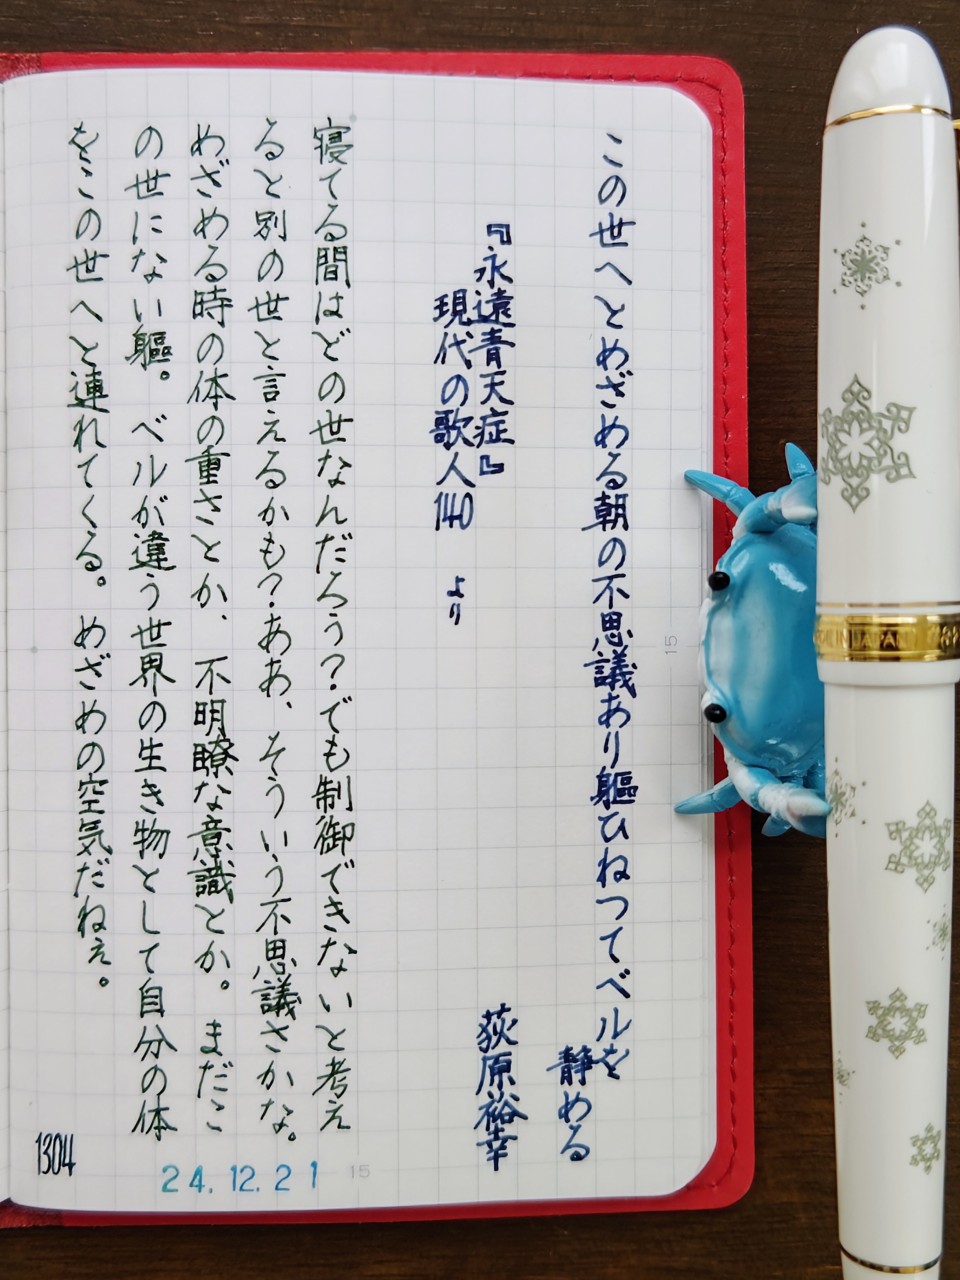 この世へとめざめる朝の不思議あり軀ひねつてベルを
静める
『永遠青天症』
荻原裕幸
現代の歌人140 より
寝てる間はどの世なんだろう？でも制御できないと考え
ると別の世と言えるかも？ああ、そういう不思議さかな。
めざめる時の体の重さとか、不明瞭な意識とか。まだこ
の世にない軀。ベルが違う世界の生き物として自分の体
をこの世へと連れてくる。めざめの空気だねぇ。
1304
24.12.21
15
15
JAPAN